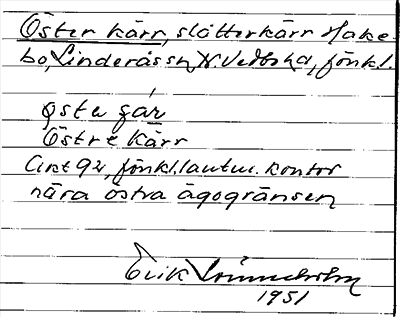 Öster kärr, slåtterkärr Hake-
bo, Linderås sn, N. Vedbo hd, Jönk l.
östa çár
Östre Kärr
Akt 92, Jönk. l. lantm. kontor
nära östra ägogränsen
Erik
1951